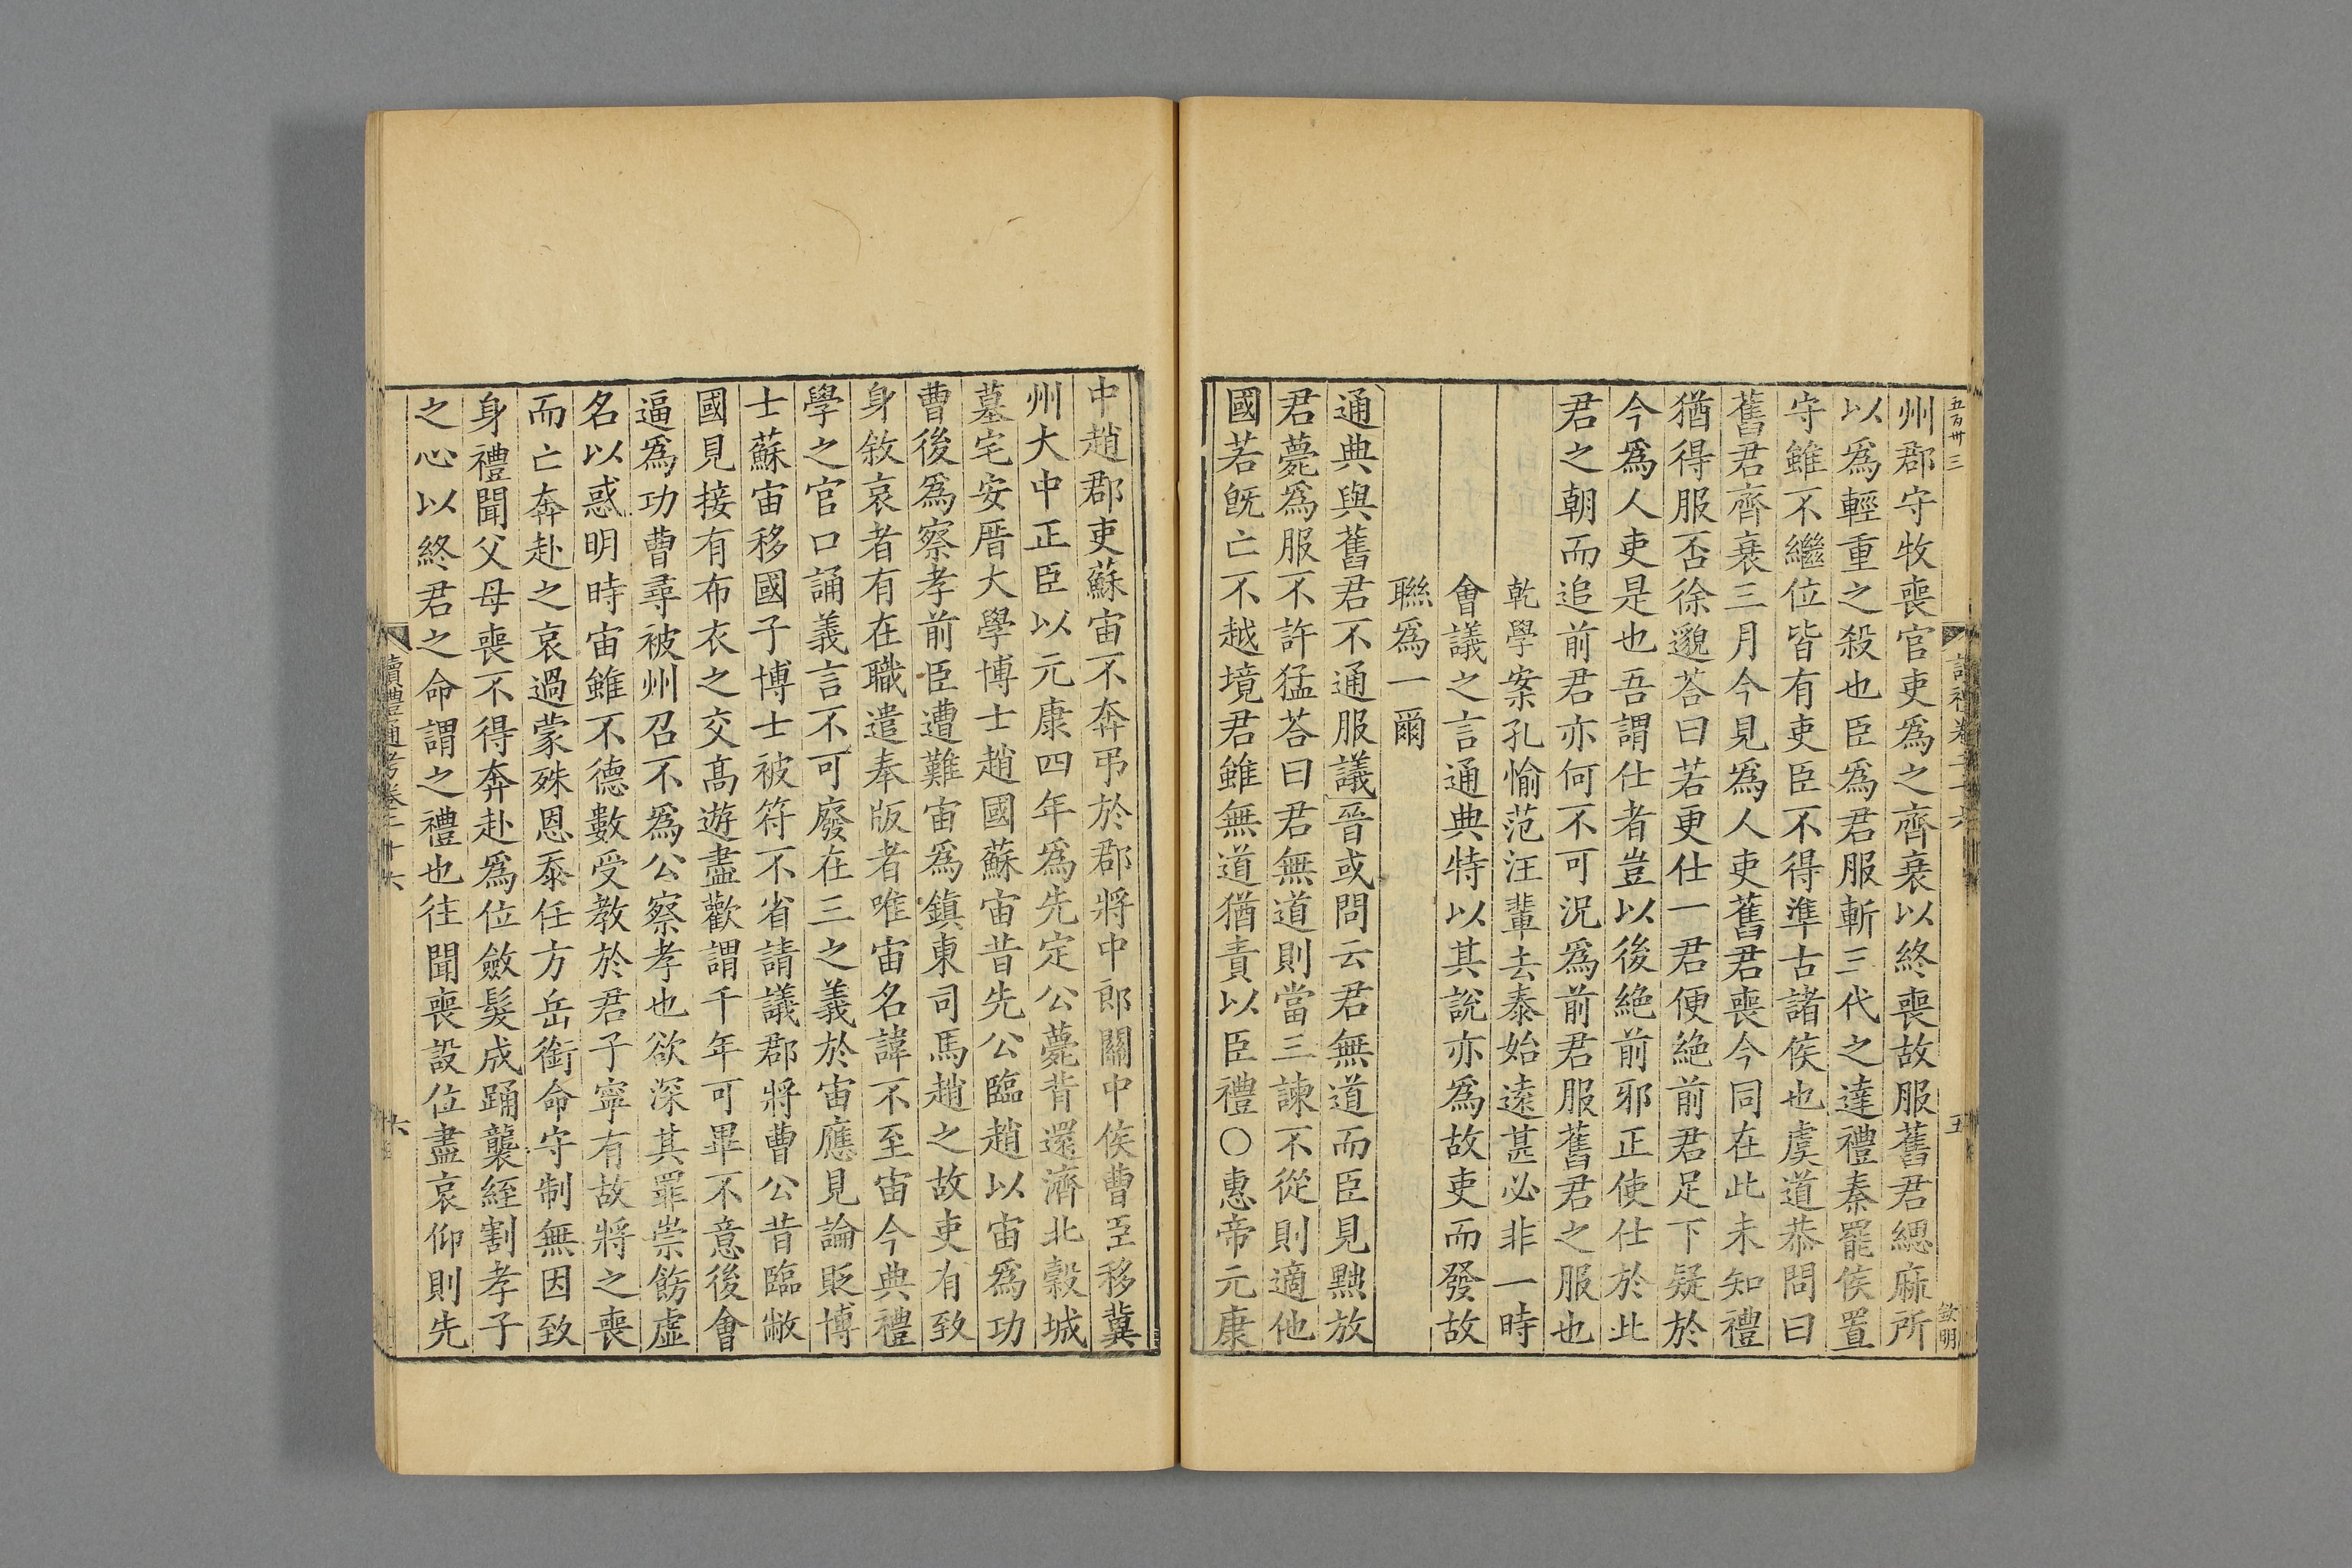 五百卅三
州郡守牧喪官吏爲之齊衰以終喪故服舊君緦麻所
以爲輕重之殺也臣爲君服斬三代之達禮秦罷侯置
守雖不繼位皆有吏臣不得準古諸侯也虞道恭問曰
舊君齊衰三月今見爲人吏舊君喪今同在此未知禮
猶得服否徐邈荅曰若更仕一君便絶前君足下疑於
今爲人吏是也吾謂仕者豈以後絶前邪正使仕於此
君之朝而追前君亦何不可況爲前君服舊君之服也
乾學案孔愉范汪輩去泰始遠甚必非一時
會議之言通典特以其說亦爲故吏而發故
聯爲一爾
通典與舊君不通服議晉或問云君無道而臣見黜放
君薨爲服不許猛荅曰君無道則當三諫不從則適他
國若旣亡不越境君雖無道猶責以臣禮○惠帝元康
五
欽明
中趙郡吏蘇宙不奔弔於郡將中郎關中侯曹臣移冀
州大中正臣以元康四年爲先定公薨背還濟北穀城
墓宅安厝大學博士趙國蘇宙昔先公臨趙以宙爲功
曹後爲察孝前臣遭難宙爲鎮東司馬趙之故吏有致
身敘哀者有在職遣奉版者唯宙名諱不至宙今典禮
學之官口誦義言不可廢在三之義於宙應見論貶博
士蘇宙移國子博士被符不省請議郡將曹公昔臨敝
國見接有布衣之交高遊盡歡謂千年可畢不意後會
逼爲功曹尋被州召不爲公察孝也欲深其罪崇飾虛
名以惑明時宙雖不德數受教於君子寧有故將之喪
而亡奔赴之哀過蒙殊恩忝任方岳銜命守制無因致
身禮聞父母喪不得奔赴爲位斂髮成踊襲絰割孝子
之心以終君之命謂之禮也往聞喪設位盡哀仰則先
讀禮通考卷三十六
六